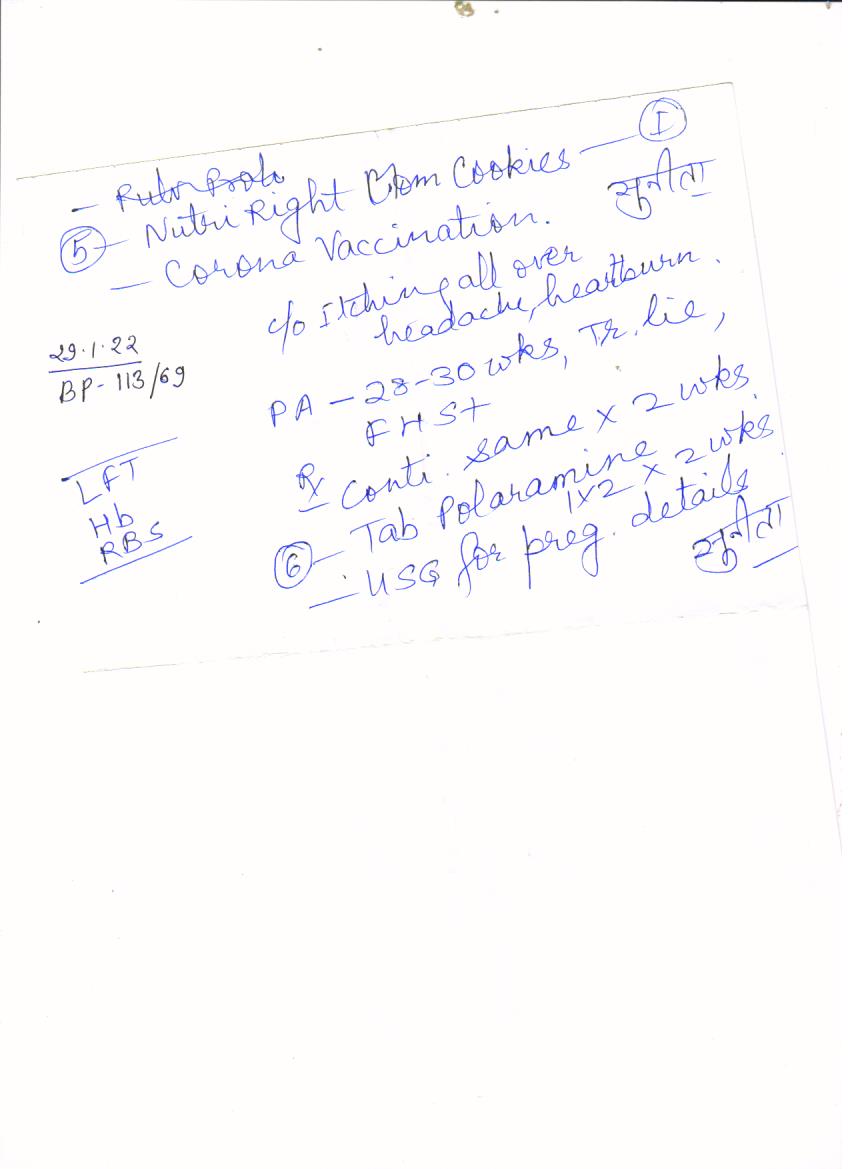 I
- Nutri Right Mom Cookies -
5
सुनीता
- Corona Vaccination.
c/o Itching all over
headache, heartburn.
29.1.22
BP - 113/69
PA - 28-30 wks, Tr. lie,
FHS+
Rx conti. same x 2 wks.
LFT
Hb
RBS
- Tab Polaramine
1x2 x 2 wks
6
- USG for preg. details.
सुनीता